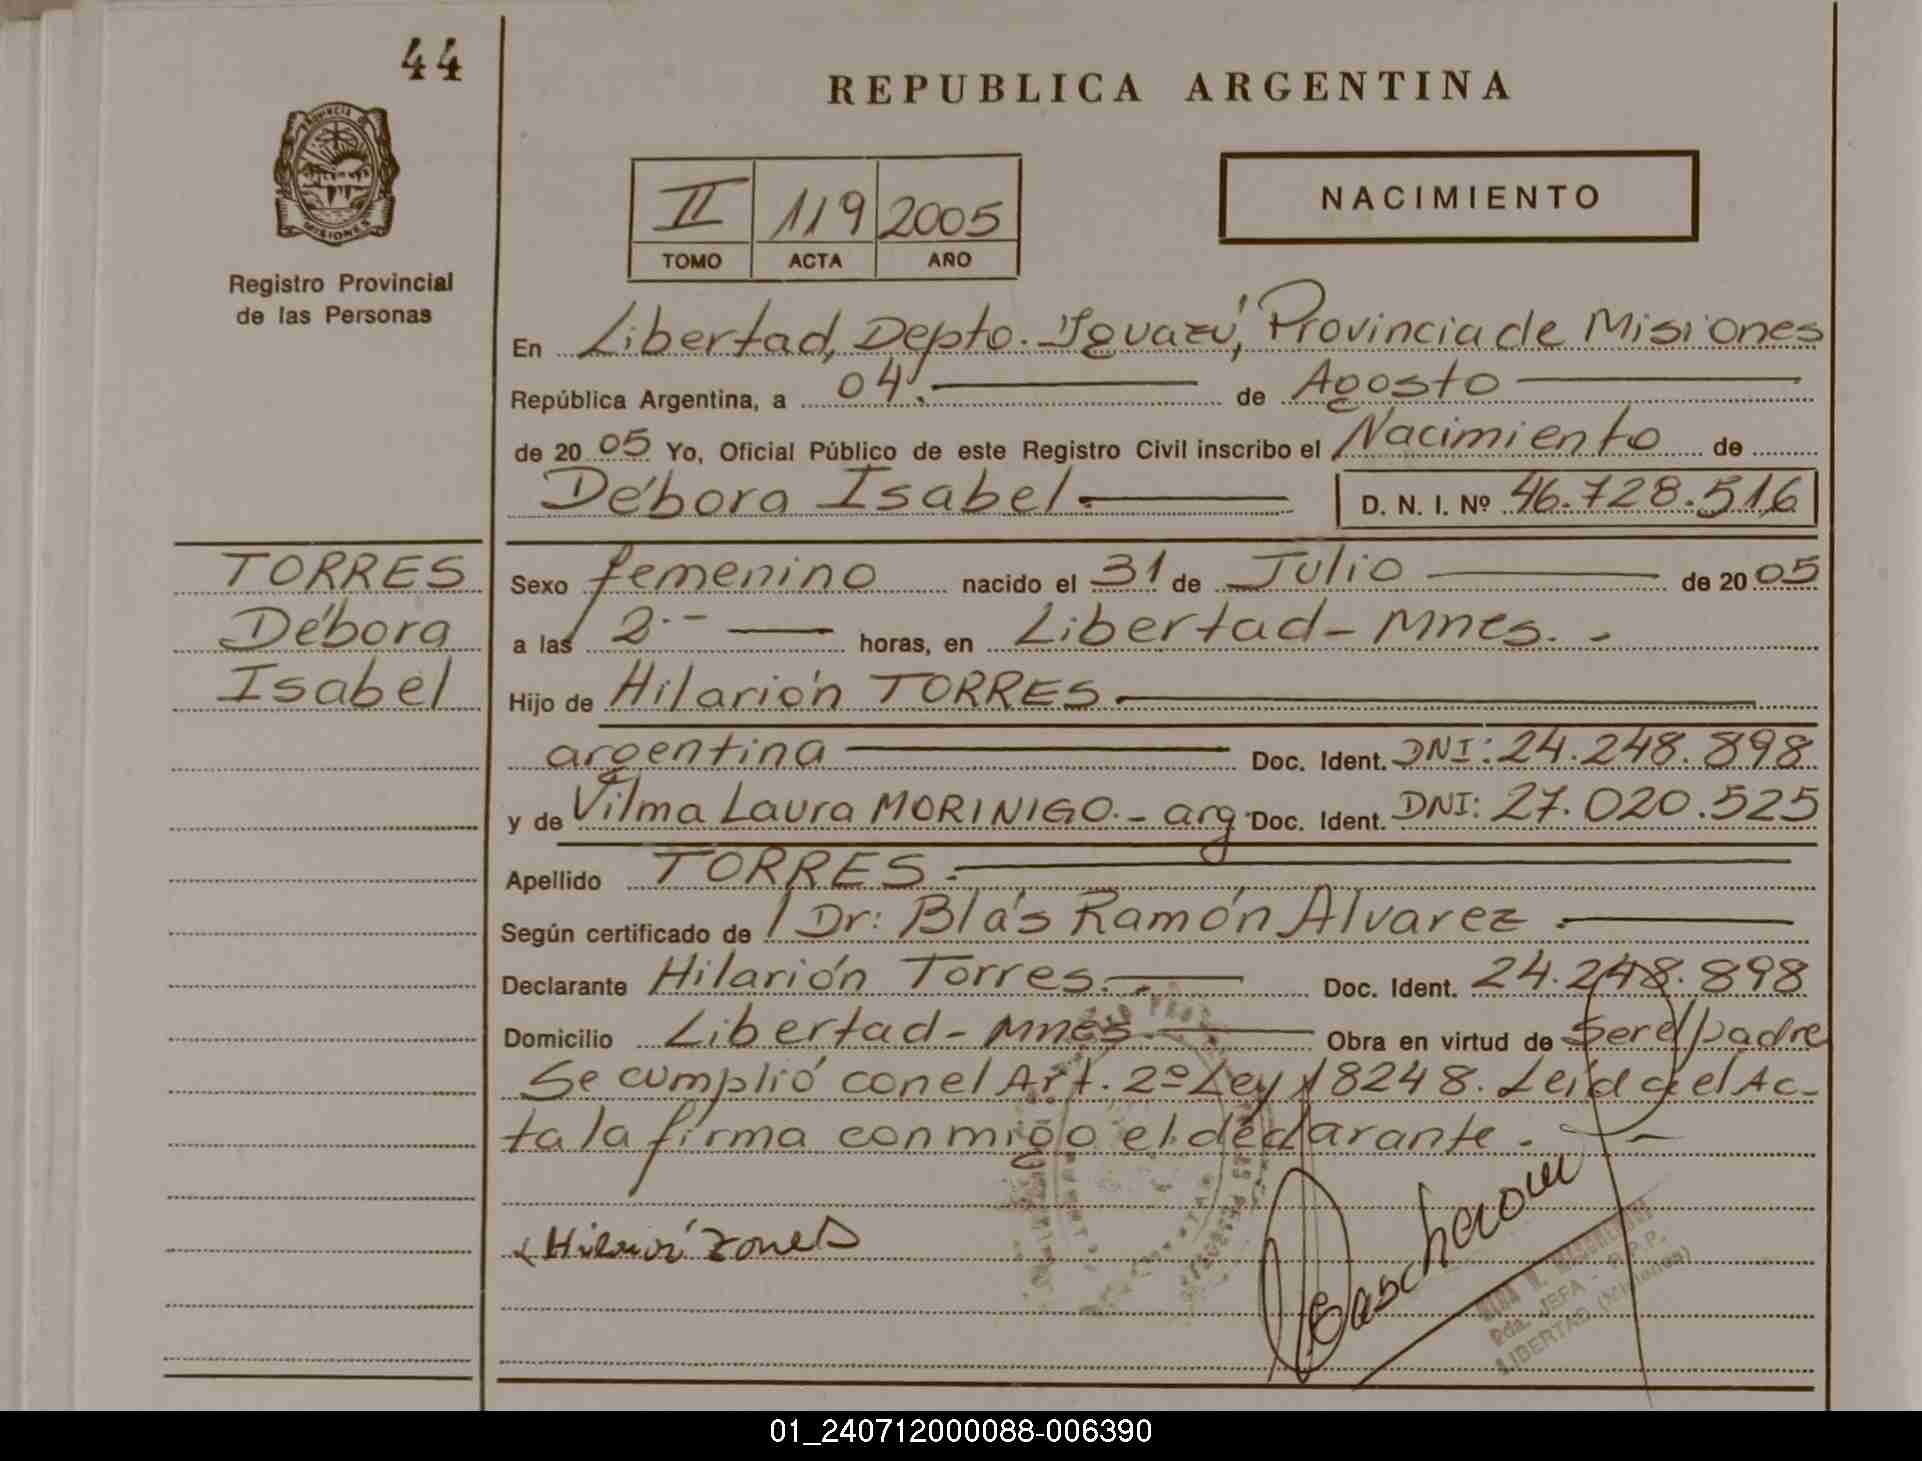 44
REPUBLICA ARGENTINA
PROVINCIA DE
MISIONES
Registro Provincial
de las Personas
II 119 2005
TOMO ACTA AÑO
NACIMIENTO
En Libertad, Depto. Iguazú, Provincia de Misiones
República Argentina, a 04.- de Agosto
de 2005 Yo, Oficial Público de este Registro Civil inscribo el Nacimiento de
Débora Isabel.- D. N. I. Nº 46.728.516
TORRES
Débora
Isabel
Sexo femenino nacido el 31 de Julio de 2005
a las 2.-- horas, en Libertad - Mnes. -
Hijo de Hilarión TORRES.-
argentina Doc. Ident. DNI: 24.248.898
y de Vilma Laura MORINIGO.- arg. Doc. Ident. DNI: 27.020.525
Apellido TORRES.-
Según certificado de Dr: Blás Ramón Alvarez
Declarante Hilarión Torres.- Doc. Ident. 24.248.898
Domicilio Libertad - Mnes Obra en virtud de Ser el padre
Se cumplió con el Art. 2º Ley 18248. Leída el Ac-
ta la firma conmigo el declarante. -
JEFA - R.P.P.
LIBERTAD (Misiones)
01_240712000088-006390